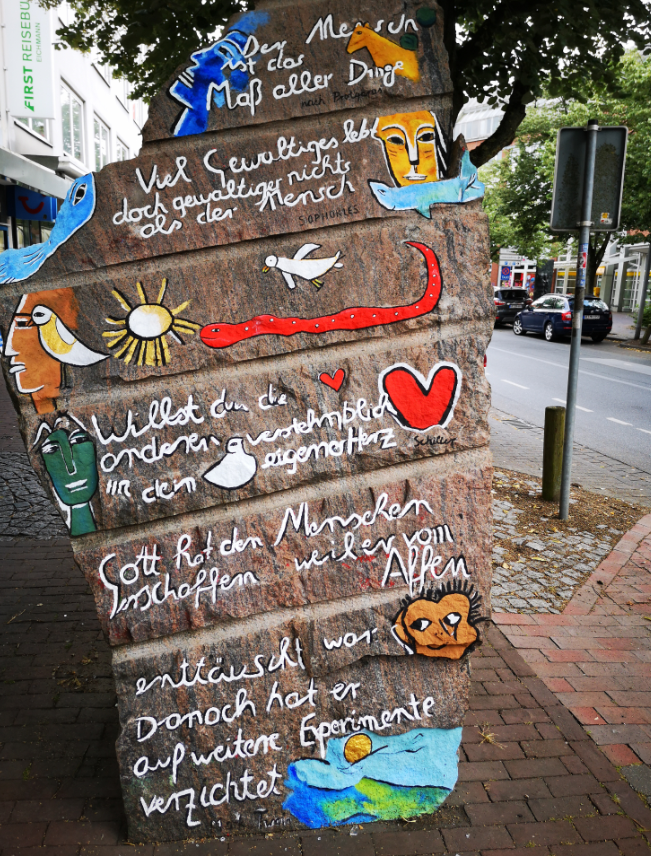 FIRST REISEBÜ
EICHMANN
Der Mensch
ist das
Maß aller Dinge
nach Protagoras
Viel Gewaltiges lebt
doch gewaltiger nichts
als der Mensch
SOPHOKLES
Willst du die
anderen verstehn blick
in dein eigenes Herz
Schiller
Gott hat den Menschen
erschaffen weil er vom
Affen
enttäuscht war
Danach hat er
auf weitere Experimente
verzichtet